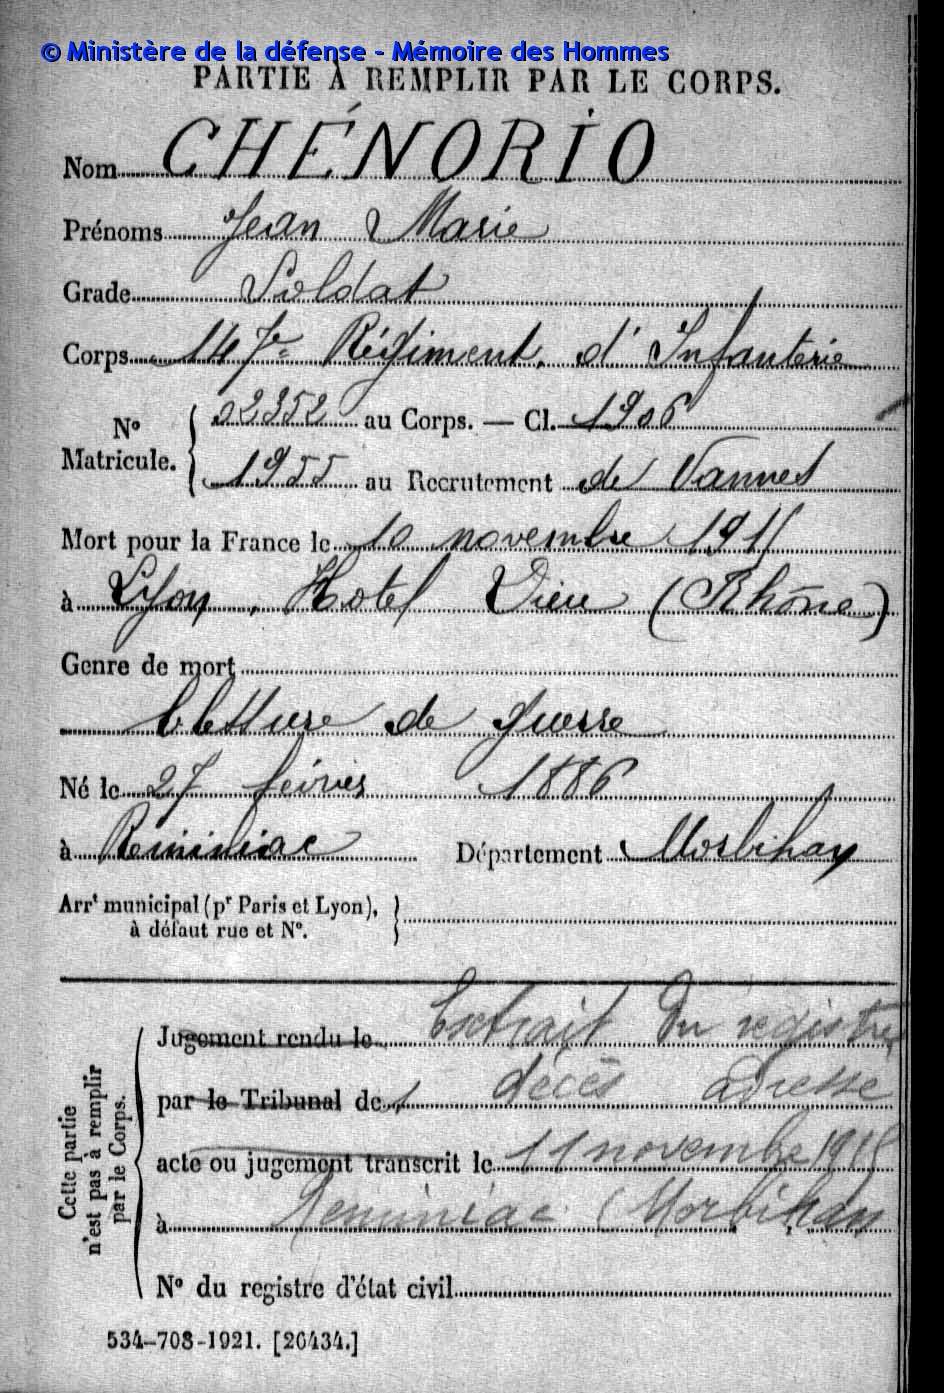 © Ministère de la défense - Mémoire des Hommes
PARTIE À REMPLIR PAR LE CORPS.
Nom CHÉNORIO
Prénoms Jean Marie
Grade Soldat
Corps 147e Régiment d'Infanterie
No Matricule. { 02352 au Corps. — Cl. 1906
1955 au Recrutement de Vannes
Mort pour la France le 10 novembre 1915
à Lyon, Hotel Dieu (Rhône)
Genre de mort
blessure de guerre
Né le 27 février 1886
à Réminiac Département Morbihan
Arrt municipal (pr Paris et Lyon), à défaut rue et No. }
Cette partie n'est pas à remplir par le Corps.
Jugement rendu le Extrait du registre
par le Tribunal de décès adressé
acte ou jugement transcrit le 11 novembre 1915
à Reminiac (Morbihan
No du registre d'état civil
534-708-1921. [26434.]